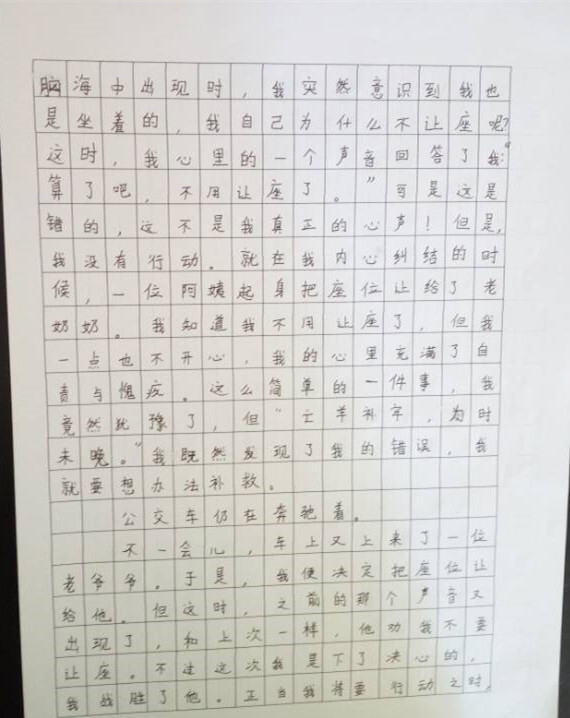 脑海中出现时，我突然意识到我也
是坐着的，我自己为什么不让座呢？
这时，我心里的一个声音回答了我：“
算了吧，不用让座了。”可是这是
错的，这不是我真正的心声！但是，
我没有行动。就在我内心纠结的时
候，一位阿姨起身把座位让给了老
奶奶。我知道我不用让座了，但我
一点也不开心，我的心里充满了自
责与愧疚。这么简单的一件事，我
竟然犹豫了，但“亡羊补牢，为时
未晚。”我既然发现了我的错误，我
就要想办法补救。
公交车仍在奔驰着。
不一会儿，车上又上来了一位
老爷爷。于是，我便决定把座位让
给他。但这时，之前的那个声音又
出现了，和上次一样，他劝我不要
让座。不过这次我是下了决心的，
我战胜了他。正当我将要行动之时，